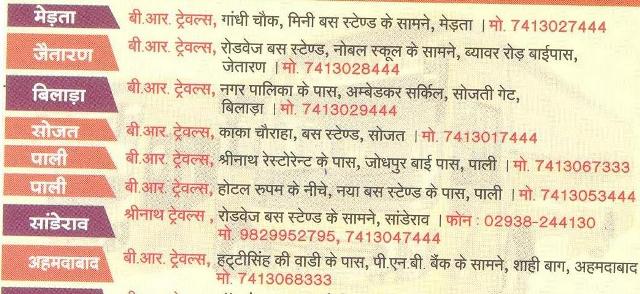 मेड़ता बी.आर. ट्रेवल्स, गांधी चौक, मिनी बस स्टेण्ड के सामने, मेड़ता । मो. 7413027444
जैतारण बी.आर. ट्रेवल्स, रोडवेज बस स्टेण्ड, नोबल स्कूल के सामने, ब्यावर रोड़ बाईपास,
जेतारण । मो. 7413028444
बिलाड़ा बी.आर. ट्रेवल्स, नगर पालिका के पास, अम्बेडकर सर्किल, सोजती गेट,
बिलाड़ा । मो. 7413029444
सोजत बी.आर. ट्रेवल्स, काका चौराहा, बस स्टेण्ड, सोजत । मो. 7413017444
पाली बी.आर. ट्रेवल्स, श्रीनाथ रेस्टोरेन्ट के पास, जोधपुर बाई पास, पाली । मो. 7413067333
पाली बी.आर. ट्रेवल्स, होटल रुपम के नीचे, नया बस स्टेण्ड के पास, पाली । मो. 7413053444
सांडेराव श्रीनाथ ट्रेवल्स, रोडवेज बस स्टेण्ड के सामने, सांडेराव । फोन : 02938-244130
मो. 9829952795, 7413047444
अहमदाबाद बी.आर. ट्रेवल्स, हट्टीसिंह की वाडी के पास, पी.एन.बी. बैंक के सामने, शाही बाग, अहमदाबाद
मो. 7413068333